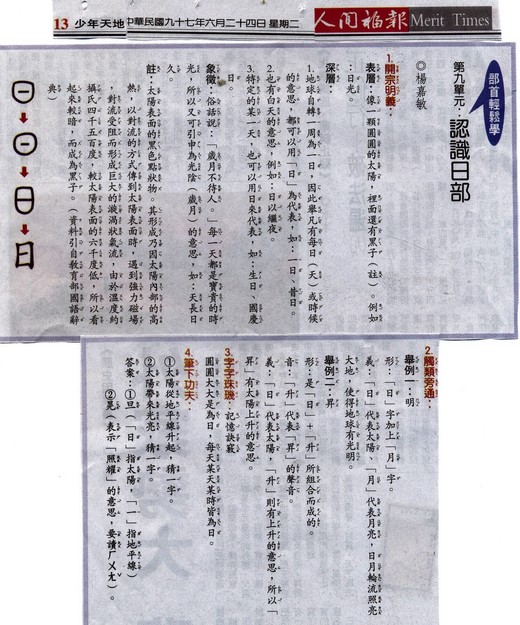 13 少年天地 中華民國九十七年六月二十四日 星期二
人間福報 Merit Times
部首輕鬆學
第九單元：認識日部
◎楊嘉敏
1.開宗明義：
表層：像一顆圓圓的太陽，裡面還有黑子（註）。例如
：日光。
深層：
1.地球自轉一周為一日，因此舉凡有每日（天）或時候
的意思，都可以用「日」為代表，如：一日、昔日。
2.有白天的意思，例如：日以繼夜。
3.特定的某一天，也可以用日來代表，如：生日、國慶
日。
象徵：俗話說：「歲月不待人。」每一天都是寶貴的時
光，所以又可引申為光陰（歲月）的意思，如：天長日
久。
註：太陽表面的黑色點狀物。其形成乃因太陽內部的高
熱，以對流的方式傳到太陽表面時，遇到強力磁場
，對流受阻而形成巨大的漩渦狀氣流，由於溫度約
攝氏四千五百度，較太陽表面的六千度低，所以看
起來較暗，而成為黑子。（資料引自教育部國語辭
典）
日
2.觸類旁通：
舉例一：明
形：「日」字加上「月」字。
義：「日」代表太陽、「月」代表月亮，日月輪流照亮
大地，使得地球有光明。
舉例二：昇
形：是「日」+「升」所組合而成的。
音：「升」代表「昇」的聲音。
義：「日」代表太陽，「升」則有上升的意思，所以「
昇」有太陽上升的意思。
3.字字珠璣：記憶訣竅
圓圓大大是為日，每天某天某時皆為日。
4.筆下功夫：
①太陽從地平線升起，猜一字。
②太陽帶來光亮，猜一字。
答案：①旦（「日」指太陽，「一」指地平線）
②晃（表示「照耀」的意思，要讀ㄏㄨㄤˇ）。